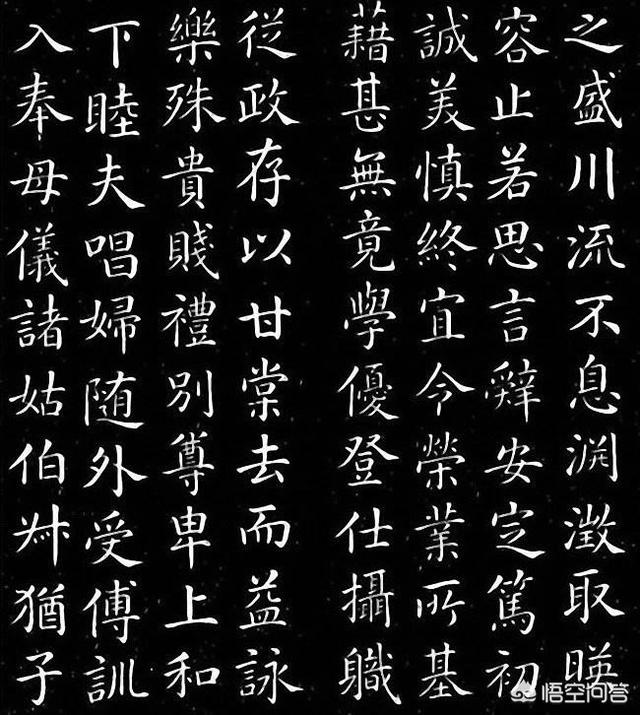 之盛川流不息渊澂取暎
容止若思言辤安定篤初
誠美慎終宜令榮業所基
藉甚無竟學優登仕攝職
従政存以甘棠去而益詠
樂殊貴賤禮別尊卑上和
下睦夫唱婦随外受傅訓
入奉母儀諸姑伯叔猶子
悟空问答